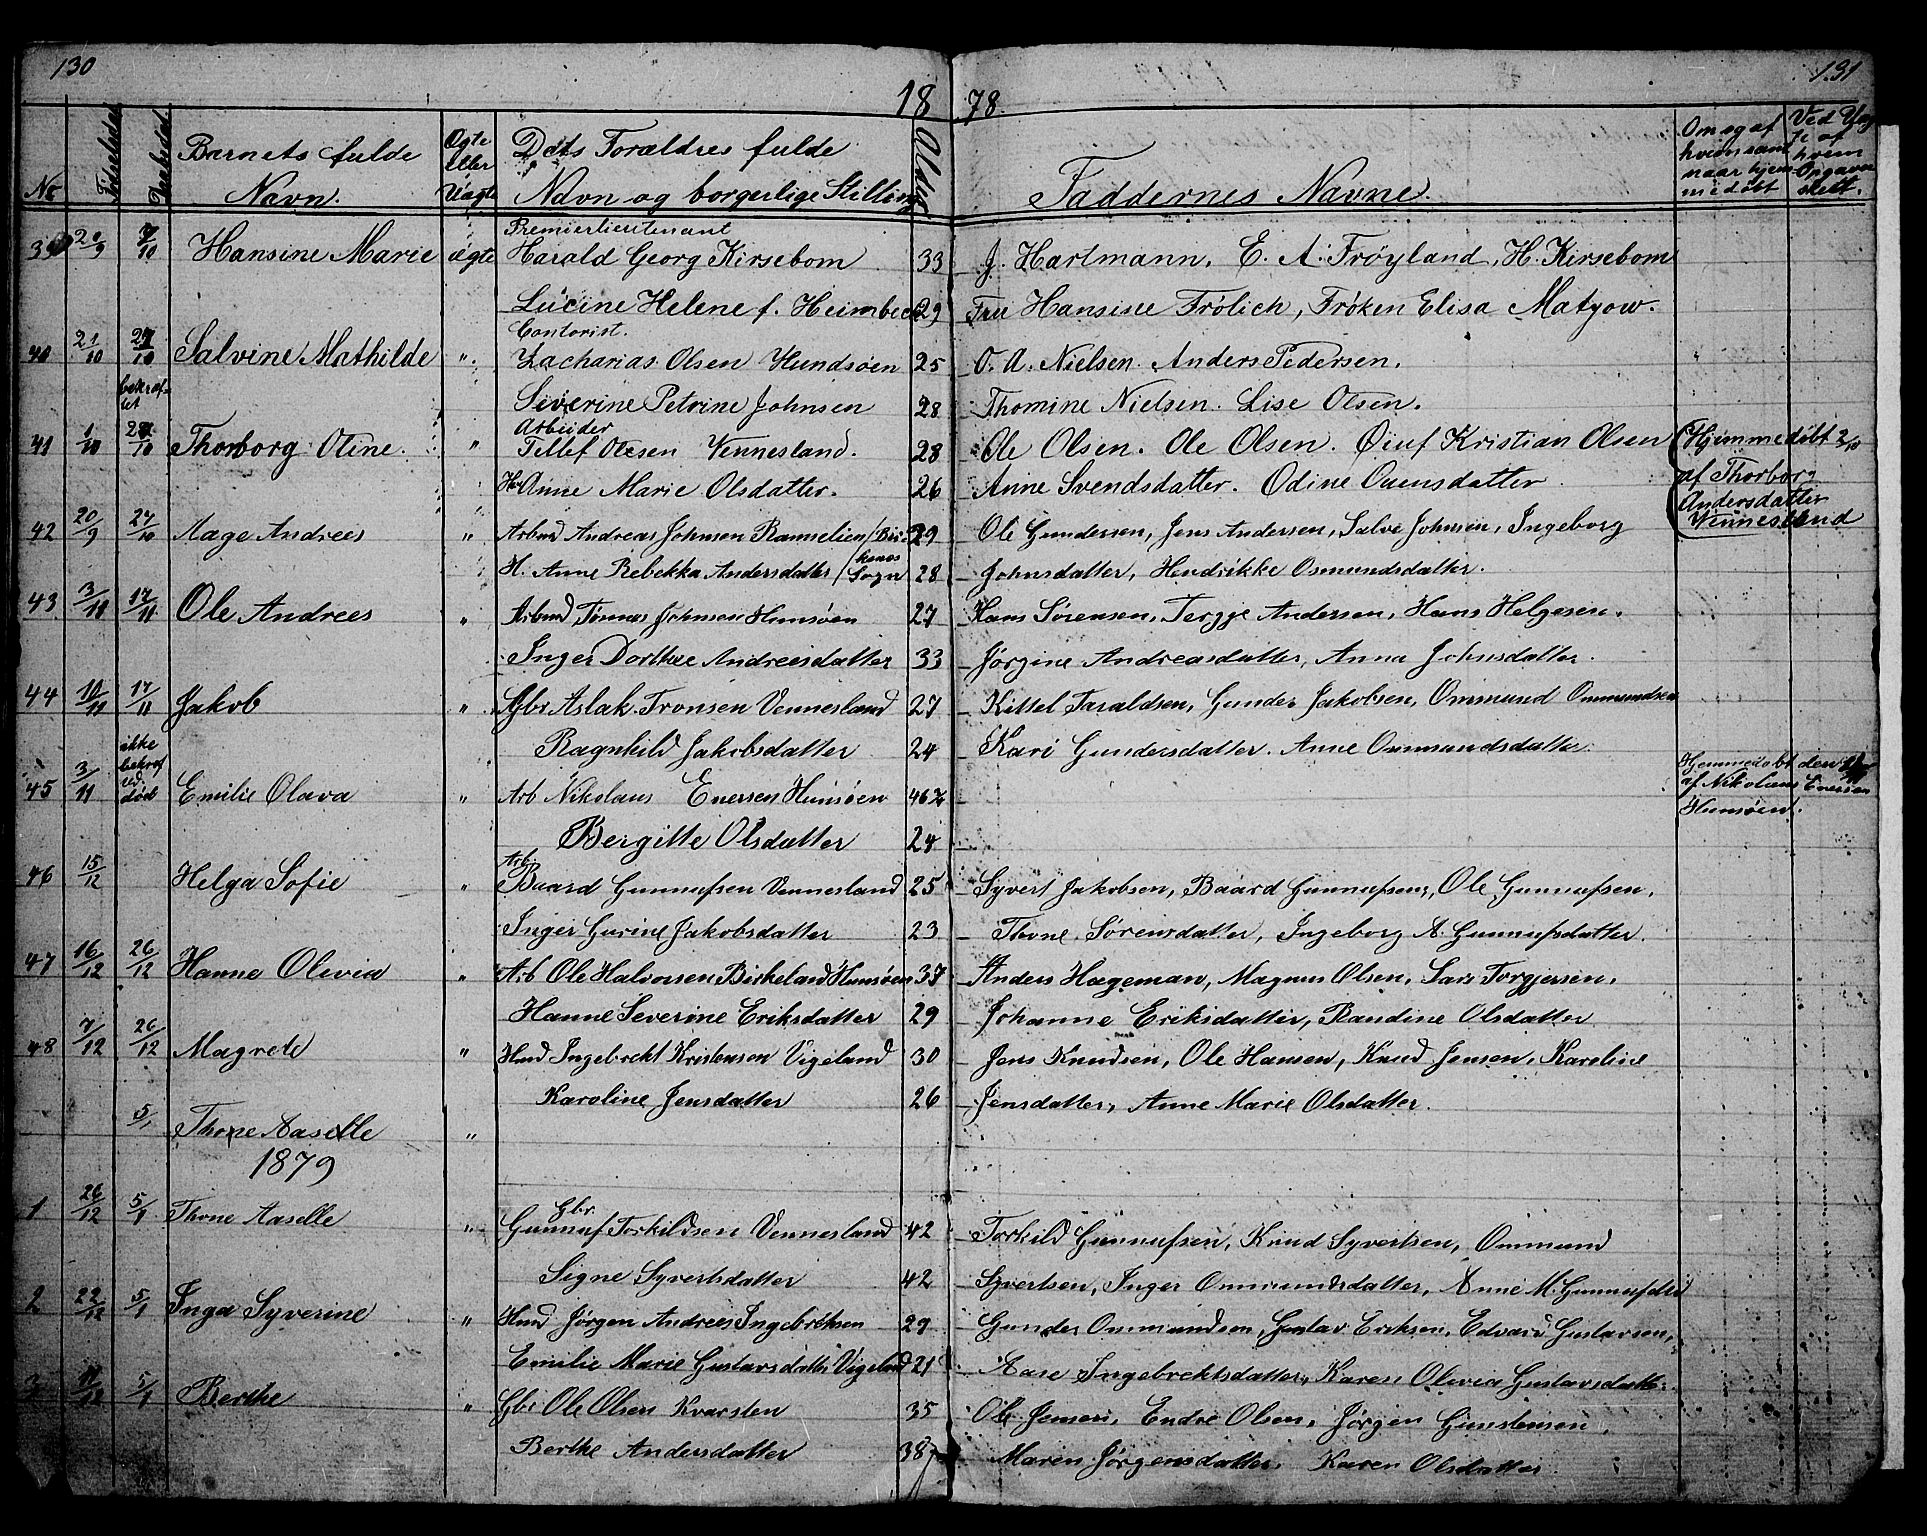 130
131
18 78.
No
Fødselsdat.
Daabsdat.
Barnets fulde
Navn.
Ægte
eller
Uægte
Dets Forældres fulde
Navn og borgerlige Stilling
Alder
Faddernes Navne.
Om og af
hvem samt
naar hjem-
medøbt
39 20/9 7/10 Hansine Marie ægte Premierlieutenant
Harald Georg Kirsebom 33 J. Hartmann, E. A. Frøyland, H. Kirsebom
Lucine Helene f. Heimbeck 29 Fru Hansine Frølich, Frøken Elisa Matgow.
Contorist.
40 21/10 27/10 Salvine Mathilde " Zacharias Olsen Hundsøen 25 O. A. Nielsen. Anders Pedersen.
bekræf-
tet
Siverine Petrine Johnsen 28 Thomine Nielsen. Lise Olsen.
Arbeider
41 1/10 27/10 Thorborg Oline. " Tellef Olsen Vennesland. 28 Ole Olsen. Ole Olsen. Kristian Olsen Hjemmedøbt 2/10
Anne Marie Olsdatter. 26 Anne Svendsdatter. Odine Ounsdatter af Thorborg
Andersdatter
Vennesland
42 20/9 27/10 Aage Andrees " Arbmd Andreas Johnsen Ramselien / Bir- 29 Ole Gundersen, Jens Andersen, Salve Johnsen, Ingeborg
kenes
H. Anne Rebekka Andersdatter / Sogn 28 Johnsdatter, Hendrikke Osmundsdatter.
43 3/11 17/11 Ole Andrees " Arbmd Tønnes Johnsen Hunsøen 27 Hans Sørensen, Tergje Andersen, Hans Helgesen.
Inger Dorthee Andreesdatter 33 Jørgine Andreasdatter, Anna Johnsdatter.
44 10/11 17/11 Jakob " Gbr Aslak Tronsen Vennesland 27 Kittel Taraldsen, Gunder Jakobsen, Ommund Ommundsen
Ragnhild Jakobsdatter 24 Kari Gundersdatter. Anne Ommundsdatter.
ikke
bekræf
død
45 3/11 Emilie Olava " Arb Nikolaus Enersen Hunsøen 46 Hjemmedøbt den
af Nikolaus Enersen
Hunsøen.
Bergitte Olsdatter 24
Arb.
46 15/12 Helga Sofie " Baard Gunnufsen Vennesland 25 Syvert Jakobsen, Baard Gunnufsen, Ole Gunnufsen.
Inger Gurine Jakobsdatter 23 Thone Sørensdatter, Ingeborg A. Gunnufsdatter.
47 16/12 26/12 Hanne Olivia " Arb Ole Halvorsen Birkeland Hunsøen 37 Anders Hageman, Magnus Olsen, Lars Torgjersen.
Hanne Severine Eriksdatter 29 Johanne Eriksdatter, Randine Olsdatter
48 7/12 26/12 Magrete " Hmd Ingebrekt Kristensen Vigeland 30 Jens Knudsen, Ole Hansen, Knud Jensen, Karoline
Karoline Jensdatter 26 Jensdatter, Anne Marie Olsdatter.
5/1 Thone Aaselle "
1879
Gbr.
1 26/12 5/1 Thone Aaselle " Gunnuf Torkildsen Vennesland 42 Torkild Gunnufsen, Knud Syvertsen, Ommund
Signe Syvertsdatter 42 Syvertsen, Inger Ommundsdatter, Anne M. Gunnufsdtr
2 22/12 5/1 Inga Syverine " Hmd Jørgen Andrees Ingebriksen 29 Gunder Ommundsen, Gustav Eriksen, Edvard Gustavsen,
Emilie Marie Gustavsdatter Vigeland 21 Aase Ingebrektsdatter, Karen Olivea Gustavsdatter.
3 17/12 5/1 Berthe " Gbr Ole Olsen Kvarsten 35 Ole Jensen, Endre Olsen, Jørgen Gunstensen,
Berthe Andersdatter 38 Maren Jørgensdatter, Karen Olsdatter